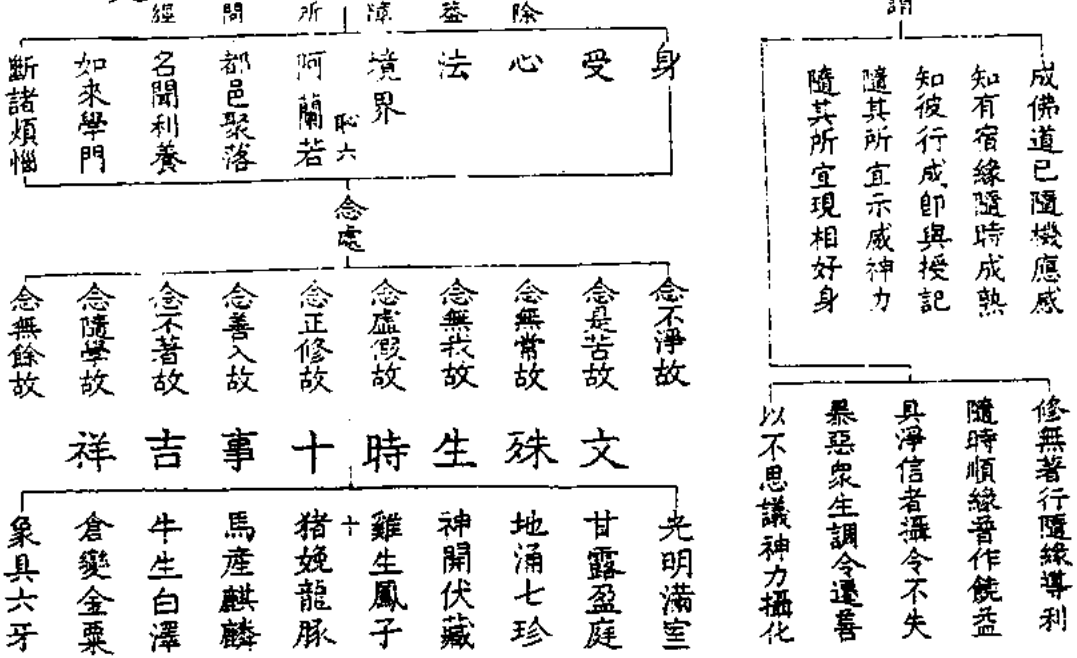 謂
成佛道已隨機應感
知有宿緣隨時成熟
知彼行成即與授記
隨其所宜示威神力
隨其所宜現相好身
修無著行隨緣導利
隨時順緣普作饒益
具淨信者攝令不失
暴惡衆生調令遷善
以不思議神力攝化
除
益
障
所
問
經
身
受
心
法
境界
阿蘭若
都邑聚落
名聞利養
如來學門
斷諸煩惱
恥六
念處
念不淨故
念是苦故
念無常故
念無我故
念虛假故
念正修故
念善入故
念不著故
念隨學故
念無餘故
文殊生時十事吉祥
十
光明滿室
甘露盈庭
地涌七珍
神開伏藏
雞生鳳子
猪娩龍豚
馬產麒麟
牛生白澤
倉變金粟
象具六牙